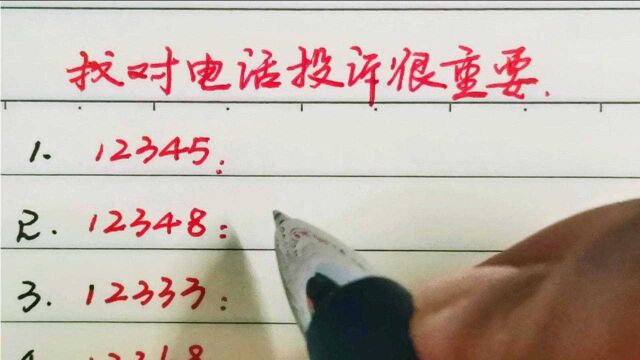 找对电话投诉很重要.
1. 12345:
2. 12348:
3. 12333: